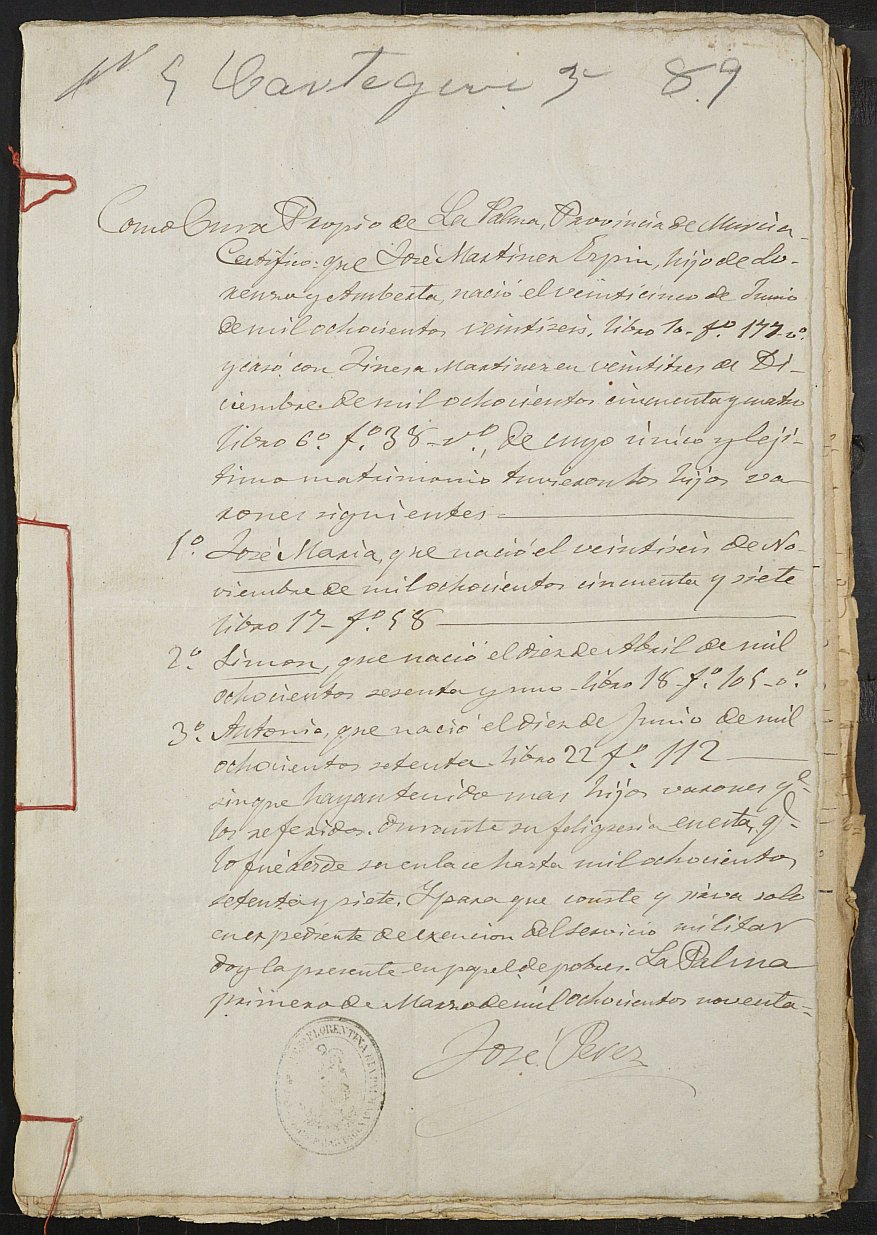 Nº 5 Cartagena 3ª 89
Como Cura Propio de La Palma, Provincia de Murcia
Certifico: que José Martinez Espin, hijo de Lo-
renzo y Amberta, nació el veinticinco de Junio
de mil ochocientos veintiseis, libro 10- fº. 177-vº.
y casó con Jinesa Martinez en veintitres de Di-
ciembre de mil ochocientos cincuenta y cuatro
libro 6º. fº. 38-vº, de cuyo único y leji-
timo matrimonio tuvieron los hijos va-
rones siguientes
1º. José Maria, que nació el veintiseis de No-
viembre de mil ochocientos cincuenta y siete
libro 17- fº. 58
2º. Simon, que nació el diez de Abril de mil
ochocientos sesenta y uno- libro 18- fº. 105-vº.
3º. Antonio, que nació el diez de Junio de mil
ochocientos setenta- libro 22 fº. 112
sin que hayan tenido mas hijos varones qe.
los referidos, durante su feligresia en esta, q.
lo fué desde su enlace hasta mil ochocientos
setenta y siete. Y para que conste y sirva solo
en expediente de exencion del servicio militar
doy la presente en papel de pobres. La Palma
primero de Marzo de mil ochocientos noventa=
José Perez
FLORENTINA